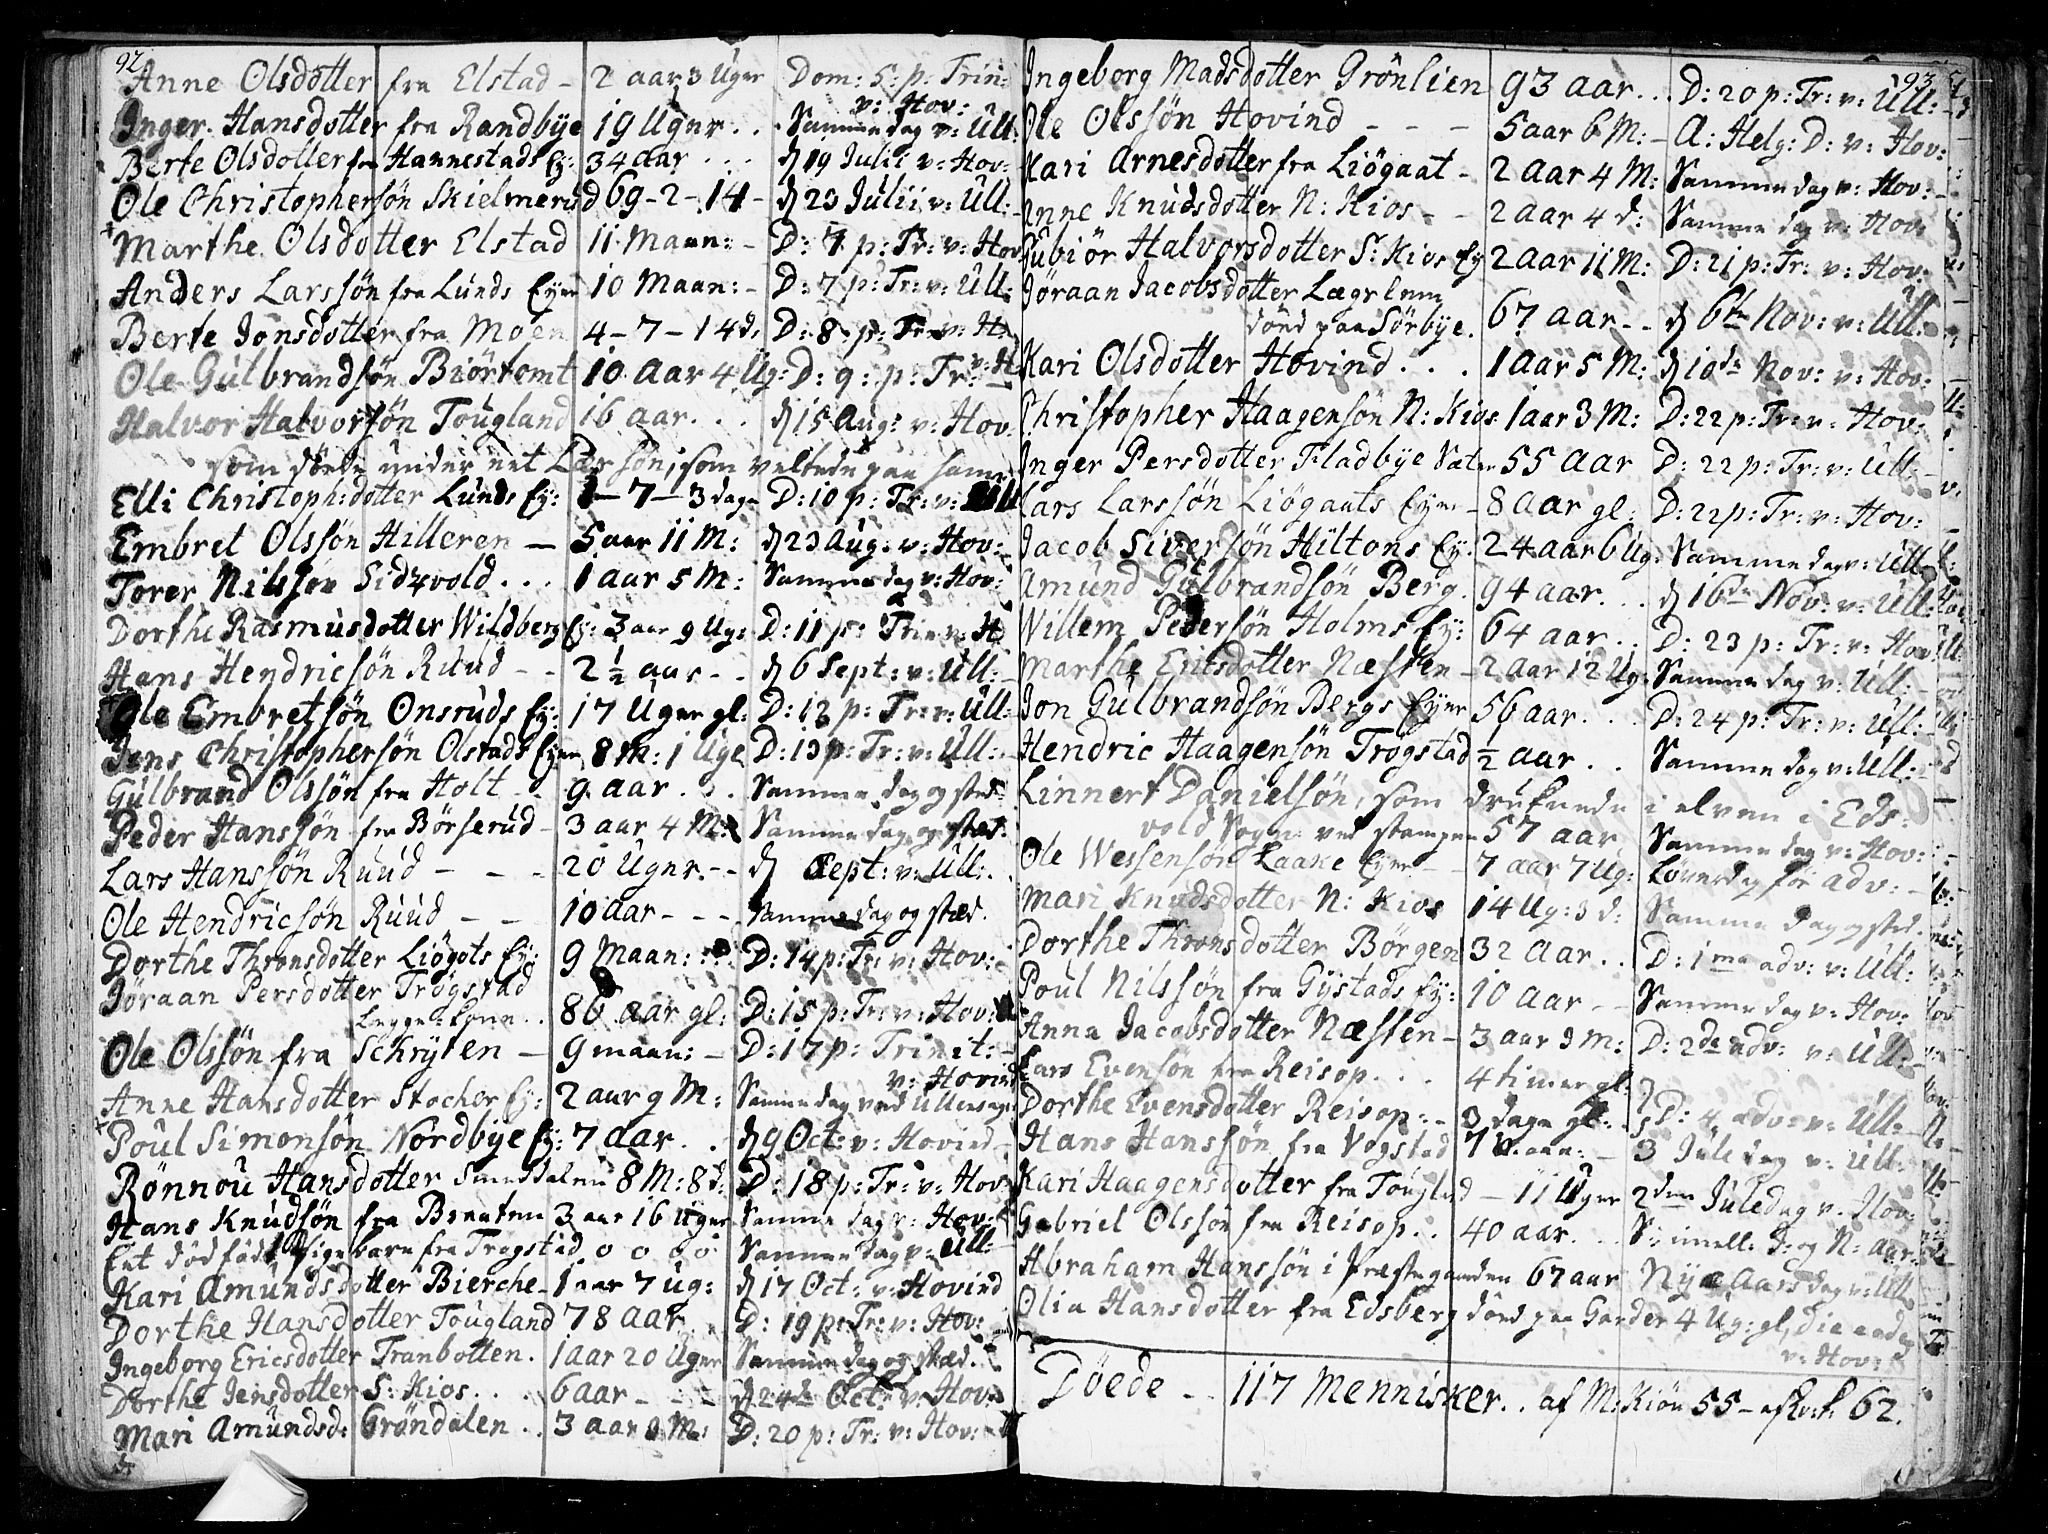 92
Anne Olsdotter fra Elstad - 2 aar 3 Uger Dom: 5: p: Trin: v: Hov:
Inger Hansdotter fra Randbye 19 Uger . . Samme dag v: Ull:
Berte Olsdotter fra Hannestads Ey: 34 aar . . . d 19 Julii v: Hov:
Ole Christophersön Skielmerud 69-2-14- d 23 Julii v: Ull:
Marthe Olsdotter Elstad 11 Maan: - D: 7 p: Tr: v: Hov
Anders Larssön fra Lunds Eyer 10 Maan: - D: 7 p: Tr: v: Ull:
Berte Jonsdotter fra Moen 4-7-14 d, D: 8 p: Tr: v: H
Ole Gulbrandsön Biörtomt 10 aar 4 Ug: D: 9: p: Tr: v: H
Halvor Halvorsön Tougland 16 aar . . . d 15 Aug: v: Hov.
som döede under eet Læs som veltede paa ham
Elli Christoph:dotter Lunds Ey: 1-7-3 dage D: 10 p: Tr: v: Ull
Embret Olssön Hilleren - 5 aar 11 M: d 23 Aug: v: Hov:
Torer Nilssön Sidzvold . . . 1 aar 5 M: Samme dag v: Hov:
Dorthe Rasmusdotter Wildberg Ey: 3 aar 9 Ug: D: 11 p: Trin v: H
Hans Hendricsön Ruud - - 2 ½ aar - - d 6 Sept: v: Ull: -
Ole Embretsön Onsruds Ey: 17 Uger gl: D: 12 p: Tr: v: Ull:
Jens Christophersön Olstads Eyer 8 M: 1 Uge D: 13 p: Tr: v: Ull:
Gulbrand Olssön fra Holt - - 9 aar . . . Samme dag og sted:
Peder Hanssön fra Börserud - 3 aar 4 M: Samme dag og sted:
Lars Hanssön Ruud - - - 20 Uger. - - d Sept: v: Ull: .
Ole Hendricsön Ruud - - 10 aar - - - Samme dag og sted.
Dorthe Thronsdotter Liögots Ey: 9 Maan: D: 14 p: Tr: v: Hov:
Jöraan Persdotter Trögstad
Legge-Kone . . 86 aar gl: D: 15 p: Tr: v: Hov:
Ole Olssön fra Schryten - 9 maan: - D: 17 p: Trinit: - v: Hovind
Anne Hansdotter Stocker Ey: 2 aar 9 M: Samme dag ved Ullensager
Poul Simonsön Nordbye Ey: 7 aar . . d 9 Oct: v: Hovind -
Rönnou Hansdotter 8 M: 8 d: D: 18 p: Tr: v: Hov
Hans Knudsön fra Braaten 3 aar 16 Uger Samme dag v: Hov:
Eet dödfödt Pigebarn fra Trögstad o o o o Samme dag v: Ull:
Kari Amundsdotter Bierche - 1 aar 7 ug: d 17 Oct: v: Hovind
Dorthe Hansdotter Tougland 78 aar . D: 19 p: Tr: v: Hov:
Ingeborg Ericsdotter Tranbotten. 1 aar 20 Uger Samme dag og sted.
Dorthe Jensdotter S: Kios . . . 6 aar - - - d 24de Oct: v: Hov
Mari Amundsd: Gröndalen . . 3 aar 9 M: D: 20 p: Tr: v: Hov:
93
Ingeborg Madsdotter Grönlien 93 aar . . D: 20 p: Tr: v: Ull:
Ole Olssön Hovind - - - 5 aar 6 M: - A: Helg: D: v: Hov:
Kari Arnesdotter fra Liögaat - 2 aar 4 M: Samme dag v: Hov:
Anne Knudsdotter N: Kios - - 2 aar 4 d: Samme dag v: Hov:
Pubiör Halvorsdotter S: Kios Ey 2 aar 11 M: D: 21 p: Tr: v: Hov:
Jöraan Jacobsdotter Lægslem
död paa Sörbye. 67 aar - - d 6te Nov: v: Ull:
Kari Olsdotter Hovind . . . 1 aar 5 M: d 10de Nov: v: Hov:
Christopher Haagensön N: Kios 1 aar 3 M: D: 22 p: Tr: v: Hov:
Inger Persdotter Fladbye Sæter 55 aar D: 22 p: Tr: v: Ull: -
Lars Larssön Liögaats Eyer - 8 aar gl: D: 22 p: Tr: v: Hov:
Jacob Siversön Hiltons Ey: 24 aar 6 Ug: Samme dag v: Ull
Amund Gulbrandsön Berg. 94 aar . . d 16de Nov: v: Ull:
Willem Pedersön Holms Ey: 64 aar . . D: 23 p: Tr: v: Hov
Marthe Ericsdotter Næsten - 2 aar 12 Ug: Samme dag v: Ull: -
Jon Gulbrandsön Bergs Eyer 56 aar . . . D: 24 p: Tr: v: Ull:
Hendric Haagensön Trogstad ½ aar . . Samme dag v: Ull:
Linnert Danielsön, som druknede i elven i Eds:
vold Sogn ved stampen 57 aar Samme dag v: Hov:
Ole Wessensön Laake Eyer - - 7 aar 7 Ug: Löverdag för adv: -
Mari Knudsdotter N: Kios 14 Ug: 3 d: Samme dag og sted.
Dorthe Thronsdotter Börgen 32 aar . . D: 1ma adv: v: Ull:
Poul Nilssön fra Gystads Ey: 10 aar - - Samme dag v: Hov:
Anna Jacobsdotter Næsten - 3 aar 3 M: D: 2de adv: v: Ull: -
Lars Evensön fra Reisop . . . 4 timer gl:
Dorthe Evensdotter Reisop: - 3 dage gl: D: 4 adv: v: Ull:
Hans Hanssön fra Vogstad 7 Maan: - 3 Juledag v: Ull:
Kari Haagensdotter fra Tougland - 11 Uger 2den Juledag v: Hov:
Gabriel Olssön fra Reisop . . 40 aar. . . S: imell: J: og N: aar:
Abraham Hanssön i Præstegaarden 67 aar Nyt Aarsdag v: Ull
Olia Hansdotter fra Edsberg död paa Garder 4 Ug: gl, die eodem v: Hov:
Döede - - 117 Mennisker . . af M: Kiön 55 - af Qv: K: 62.